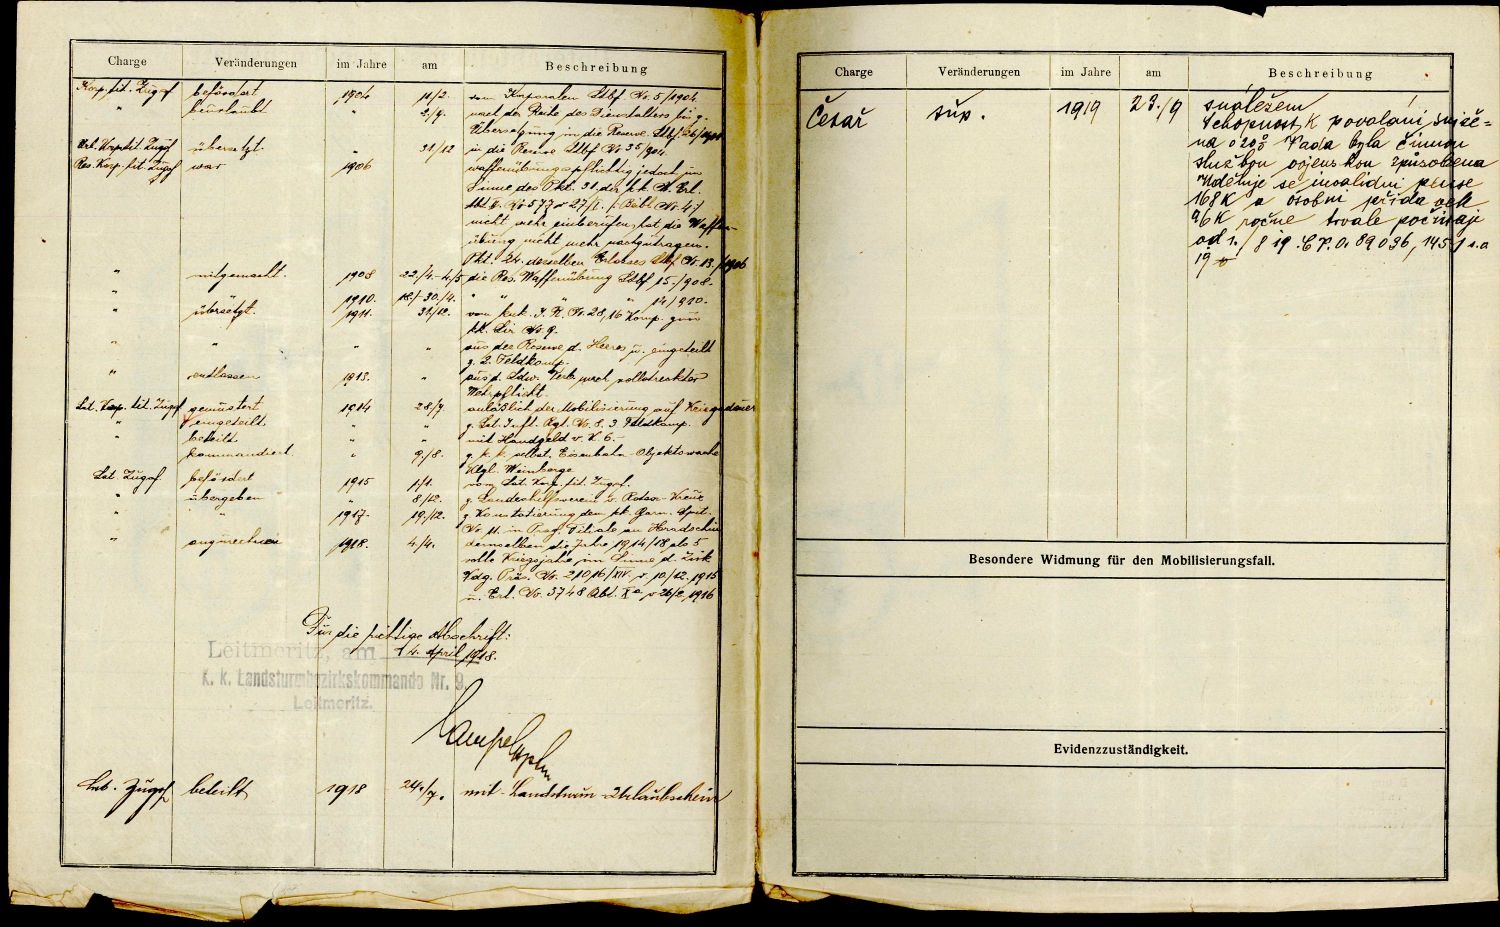 Charge Veränderungen im Jahre am Beschreibung
Korp. tit. Zugsf befördert 1904 11/2. vom Korporalen Stbf. No. 5/1904.
" beurlaubt " 2/9. nach der Reihe des Dienstalters bis z.
Übersetzung in die Reserve Stbf.
Url. Korp. tit. Zugsf übersetzt. " 31/12 in die Reserve Stbf No 35/904.
Res. Korp. tit. Zugsf war 1906 waffenübungspflichtig jedoch im
Sinne des Pkt. 31 der k.k. Erl.
Abt. No 577 v 27/ No. 47
nicht mehr einberufen, hat die Waffen-
übung nicht mehr nachzutragen.
Pkt. 24. desselben Erlasses Stbf No. 13./1906
" mitgemacht. 1908 22./4.-4./5 die Res. Waffenübung Stbf 15./908.
" 1910. 18./-30./4. " " " " 14/910.
" übersetzt. 1911. 31/12. vom kuk. I. R. No. 28, 16 Komp. zum
kk. Lir No 9.
" " " " aus der Reserve d. Heeres u. eingeteilt
z. 2. Feldkomp.
" entlassen 1913. " aus d. Ldw. Verb. nach vollstreckter
Wehrpflicht.
Lst. Korp. tit. Zugsf gemustert 1914 28/7. anläßlich der Mobilisierung auf Kriegsdauer
" eingeteilt. " " z. Lst. Inft. Rgt. No. 8. 3 Feldkomp.
" beteilt. " " mit Handgeld v. K 6.-
kommandiert. " 9./8. z. k. k. selbst. Eisenbahn-Objektswache
Kgl. Weinberge
Lst Zugsf. befördert 1915 1/1. vom Lst. Korp. tit. Zugsf.
" übergeben " 8/12. z. Landeshilfsverein v. Roten-Kreuz
" " 1917. 19./12. z. Konstatierung dem kk. Garn. Spit.
No. 11. in Prag Filiale am Hradschin
" angerechnet 1918. 4/4. demselben die Jahre 1914/18 als 5
volle Kriegsjahre im Sinne d. Zirk
Vdg. Präs. No. 21016/XIV. v. 10/12. 1915
u. Erl. No. 3748 Abt. Xa v 26/2. 1916
Für die richtige Abschrift:
Leitmeritz, am 4. April 1918.
K. k. Landsturmbezirkskommando Nr. 9
Leitmeritz.
Lst. Zugsf beteilt 1918 24./7. mit Landsturm-Urlaubschein
Charge Veränderungen im Jahre am Beschreibung
Četař sup. 1919 23./9 snáležem
Schopnost k povolání sníže-
na o 20% Vada byla činnou
službou vojenskou způsobena
Uděluje se invalidní pense
168 K a osobní přídavek
96 K ročně trvale počínaje
od 1./8 19. 89036, 145
19
Besondere Widmung für den Mobilisierungsfall.
Evidenzzuständigkeit.